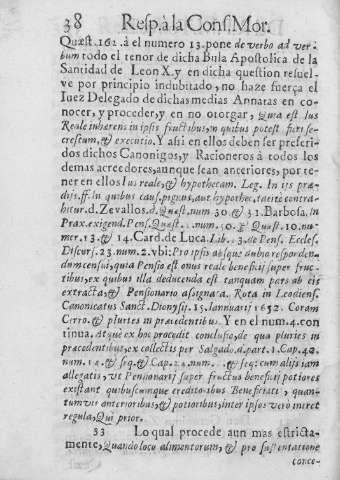 38 Resp. à la Cons. Mor.
Quæst. 162. à el numero 13. pone de verbo ad ver-
bum todo el tenor de dicha Bula Apostolica de la
Santidad de Leon X. y en dicha question resuel-
ve por principio indubitado, no haze fuerça el
Iuez Delegado de dichas medias Annatas en co-
nocer, y proceder, y en no otorgar, Quia est Ius
Reale inhærens in ipsis fructibus, in quibus potest fieri se-
crestum, & executio. Y assi en ellos deben ser preferi-
dos dichos Canonigos, y Racioneros à todos los
demas acreedores, aunque sean anteriores, por te-
ner en ellos Ius reale, & hypothecam. Leg. In ijs præ-
dijs. ff. In quibus caus. pignus, aut hypothec. tacitè contra-
hitur. d. Zevallos. d. Quæst. num 30 & 31. Barbosa. in
Prax. exigend. Pens. Quæst. num. 10. Quæst. 10. nu-
mer. 13. & 14. Card. de Luca. Lib. 3. de Pens. Eccles.
Discurs. 23. num. 2. vbi: Pro ipsis absque dubio responden-
dum censui, quia Pensio est onus reale beneficij super fruc-
tibus, ex quibus illa deducenda est tanquam pars ab eis
extracta, & Pensionario assignata. Rota in Leodiens.
Canonicatus Sanct. Dionysij. 15. Ianuarij 1652. Coram
Cerro. & pluries in præcedentibus. Y en el num. 4. con
tinua. Atque ex hoc procedit conclusio, de qua pluries in
præcedentibus, ex collectis per Salgado. d. part. 1. Cap. 42.
num. 12. & seq. & Cap. num. & seq: cum alijs iam
allegatis, vt Pensionarij super fructus beneficij potiores
existant quibuscumque creditoribus Beneficiati, quan-
tumvis anterioribus, & potioribus, inter ipsos vero meret
regula, Qui prior.
33 Lo qual procede aun mas estricta-
mente, Quando loco alimentorum, & pro sustentatione
conce-